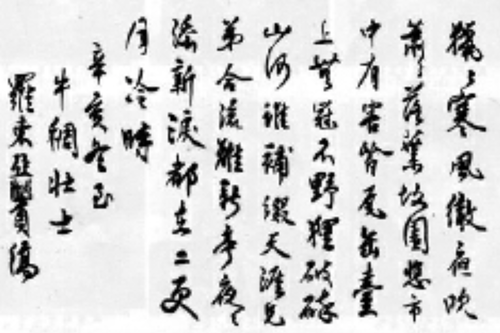 獵〻寒風徹夜吹
蕭〻落葉故園悲市
中有害皆瓦缶臺
上無冠不野貍破碎
山河誰補綴天涯兄
弟合流離新亭夜〻
添新淚都在二更
月冷時
辛亥冬至
牛稠壯士
羅東亞賢稿